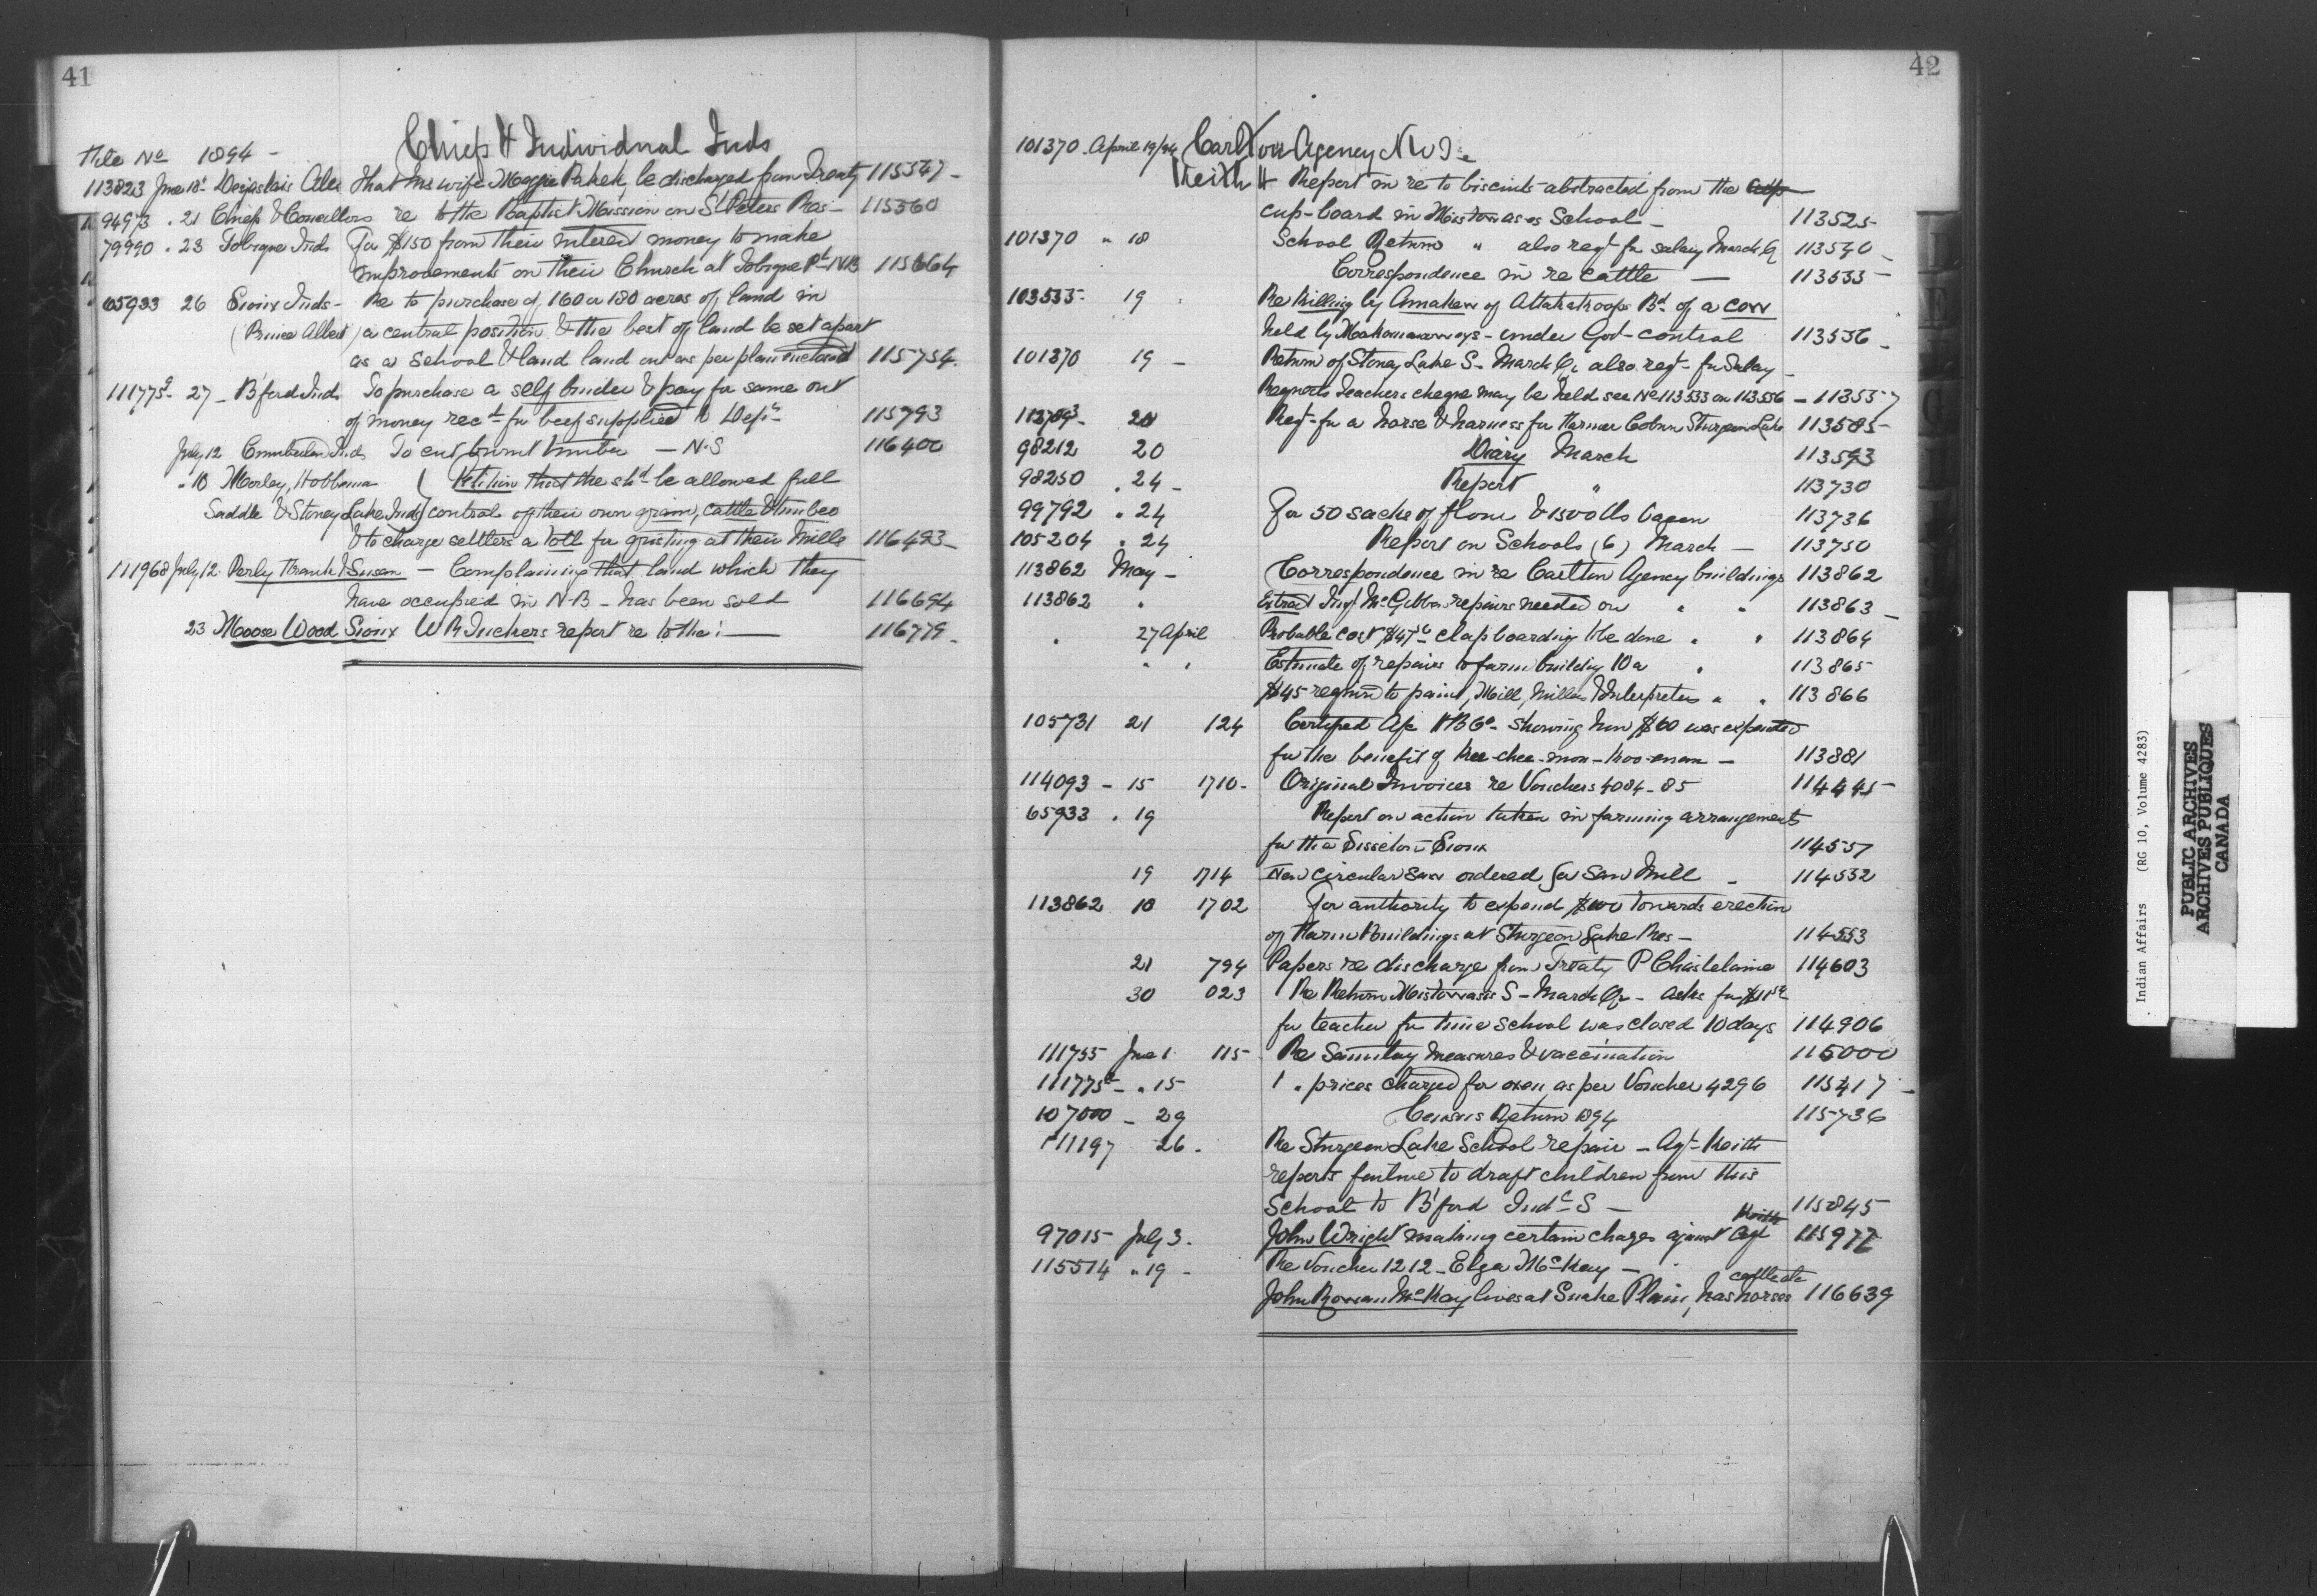 41
Chiefs & Individual Inds
File No 1894 -
113823 June 18 Desjarlais Alex that his wife Maggie be discharged from Treaty 115547 -
94973 . 21 Chiefs & Councillors re to the Baptist Mission on St Peters Res - 115560
79990 . 23 Tobique Inds For $150 from their interest money to make
improvements on their Church at Tobique Pt N.B 115664
65933 26 Sioux Inds - Re to purchase of 160 or 180 acres of land in
(Prince Albert) a central position & the best of land be set apart
as a school & land land out as per plan enclosed 115754.
111775 27 - B'ford Inds To purchase a self binder & pay for same out
of money recd for beef supplied to Dept 115793
July 12 Cumberland Inds To cut burnt timber - N.S 116400
" 18 Morley, Hobbema Petition that the shd be allowed full
Saddle & Stoney Lake Inds control of their own grain, cattle & timber
& to charge settlers a toll for gristing at their Mills 116493 -
111968 July 12 Perly Frank & Susan - Complaining that land which they
have occupied in N.B - has been sold 116694
23 Moose Wood Sioux W R Inckers report re to the : 116779 -
42
101370 April 19/94 Carlton Agency N W T.
Keith H Report in re to biscuits abstracted from the
cup-board in Mistowasis School - 113525
101370 " 18 School Return " also reqt for salary March Q 113540 -
Correspondence in re cattle - 113533 -
103535 - 19 Re Killing by Amakew of Attakakoops Bd of a cow
held by - under Govt - control 113556 -
101370 19 - Return of Stoney Lake S - March Qr also reqt - for Salary -
Reports Teachers cheque may be held see No 113533 on 113556 - 113557
20 Reqt - for a horse & harness for Farmer Coburn Sturgeon Lake 113585 -
98212 20 Diary March 113593
98250 . 24 - Report " 113730
99792 . 24 For 50 sacks of flour & 1500 lbs bacon 113736
105204 . 24 Report on Schools (6) March - 113750
113862 May - Correspondence in re Carlton Agency buildings 113862
113862 " Extract Insp McGibbon repairs needed on " " 113863 -
" 27 April Probable cost $47 clapboarding to be done " " 113864
" " Estimate of repairs to farm building 10a " 113865
$45 required to paint, Mill, Millers & Interpreters " " 113866
105731 21 124 Certified a/c H B Co - showing how $60 was expended
for the benefit of Kee-chee-mon-koo-enam - 113881
114093 - 15 1710 - Original Invoices re Vouchers 4084 - 85 114445 -
65933 . 19 Report on action taken in farming arrangements
for the Sisseton Sioux 114557
19 1714 New circular saw ordered for Saw Mill - 114532
113862 10 1702 For authority to expend $100 towards erection
of Farm Buildings at Sturgeon Lake Res - 114553
21 794 Papers re discharge from Treaty P Chastelaine 114603
30 023 Re Return Mistowasis S - March Qr - asks for $11
for teacher for time school was closed 10 days 114906
111755 June 1 115 - Re Sanitary measures & vaccination 115000
111775 - " 15 " prices charged for oxen as per Voucher 4296 115417 -
107000 - 29 Census Return 1894 115736
111197 26 . Re Sturgeon Lake School repair - Agt - Keith
reports failure to draft children from this
School to B'ford Indl S - 115845
97015 July 3. John Wright making certain charges against Agt Keith 115977
115514 " 19 - Re Voucher 1212 - Elza McKay -
John Rowan McKay lives at Snake Plain, has horses cattle etc 116639
Indian Affairs (RG 10, Volume 4283)
PUBLIC ARCHIVES
ARCHIVES PUBLIQUES
CANADA